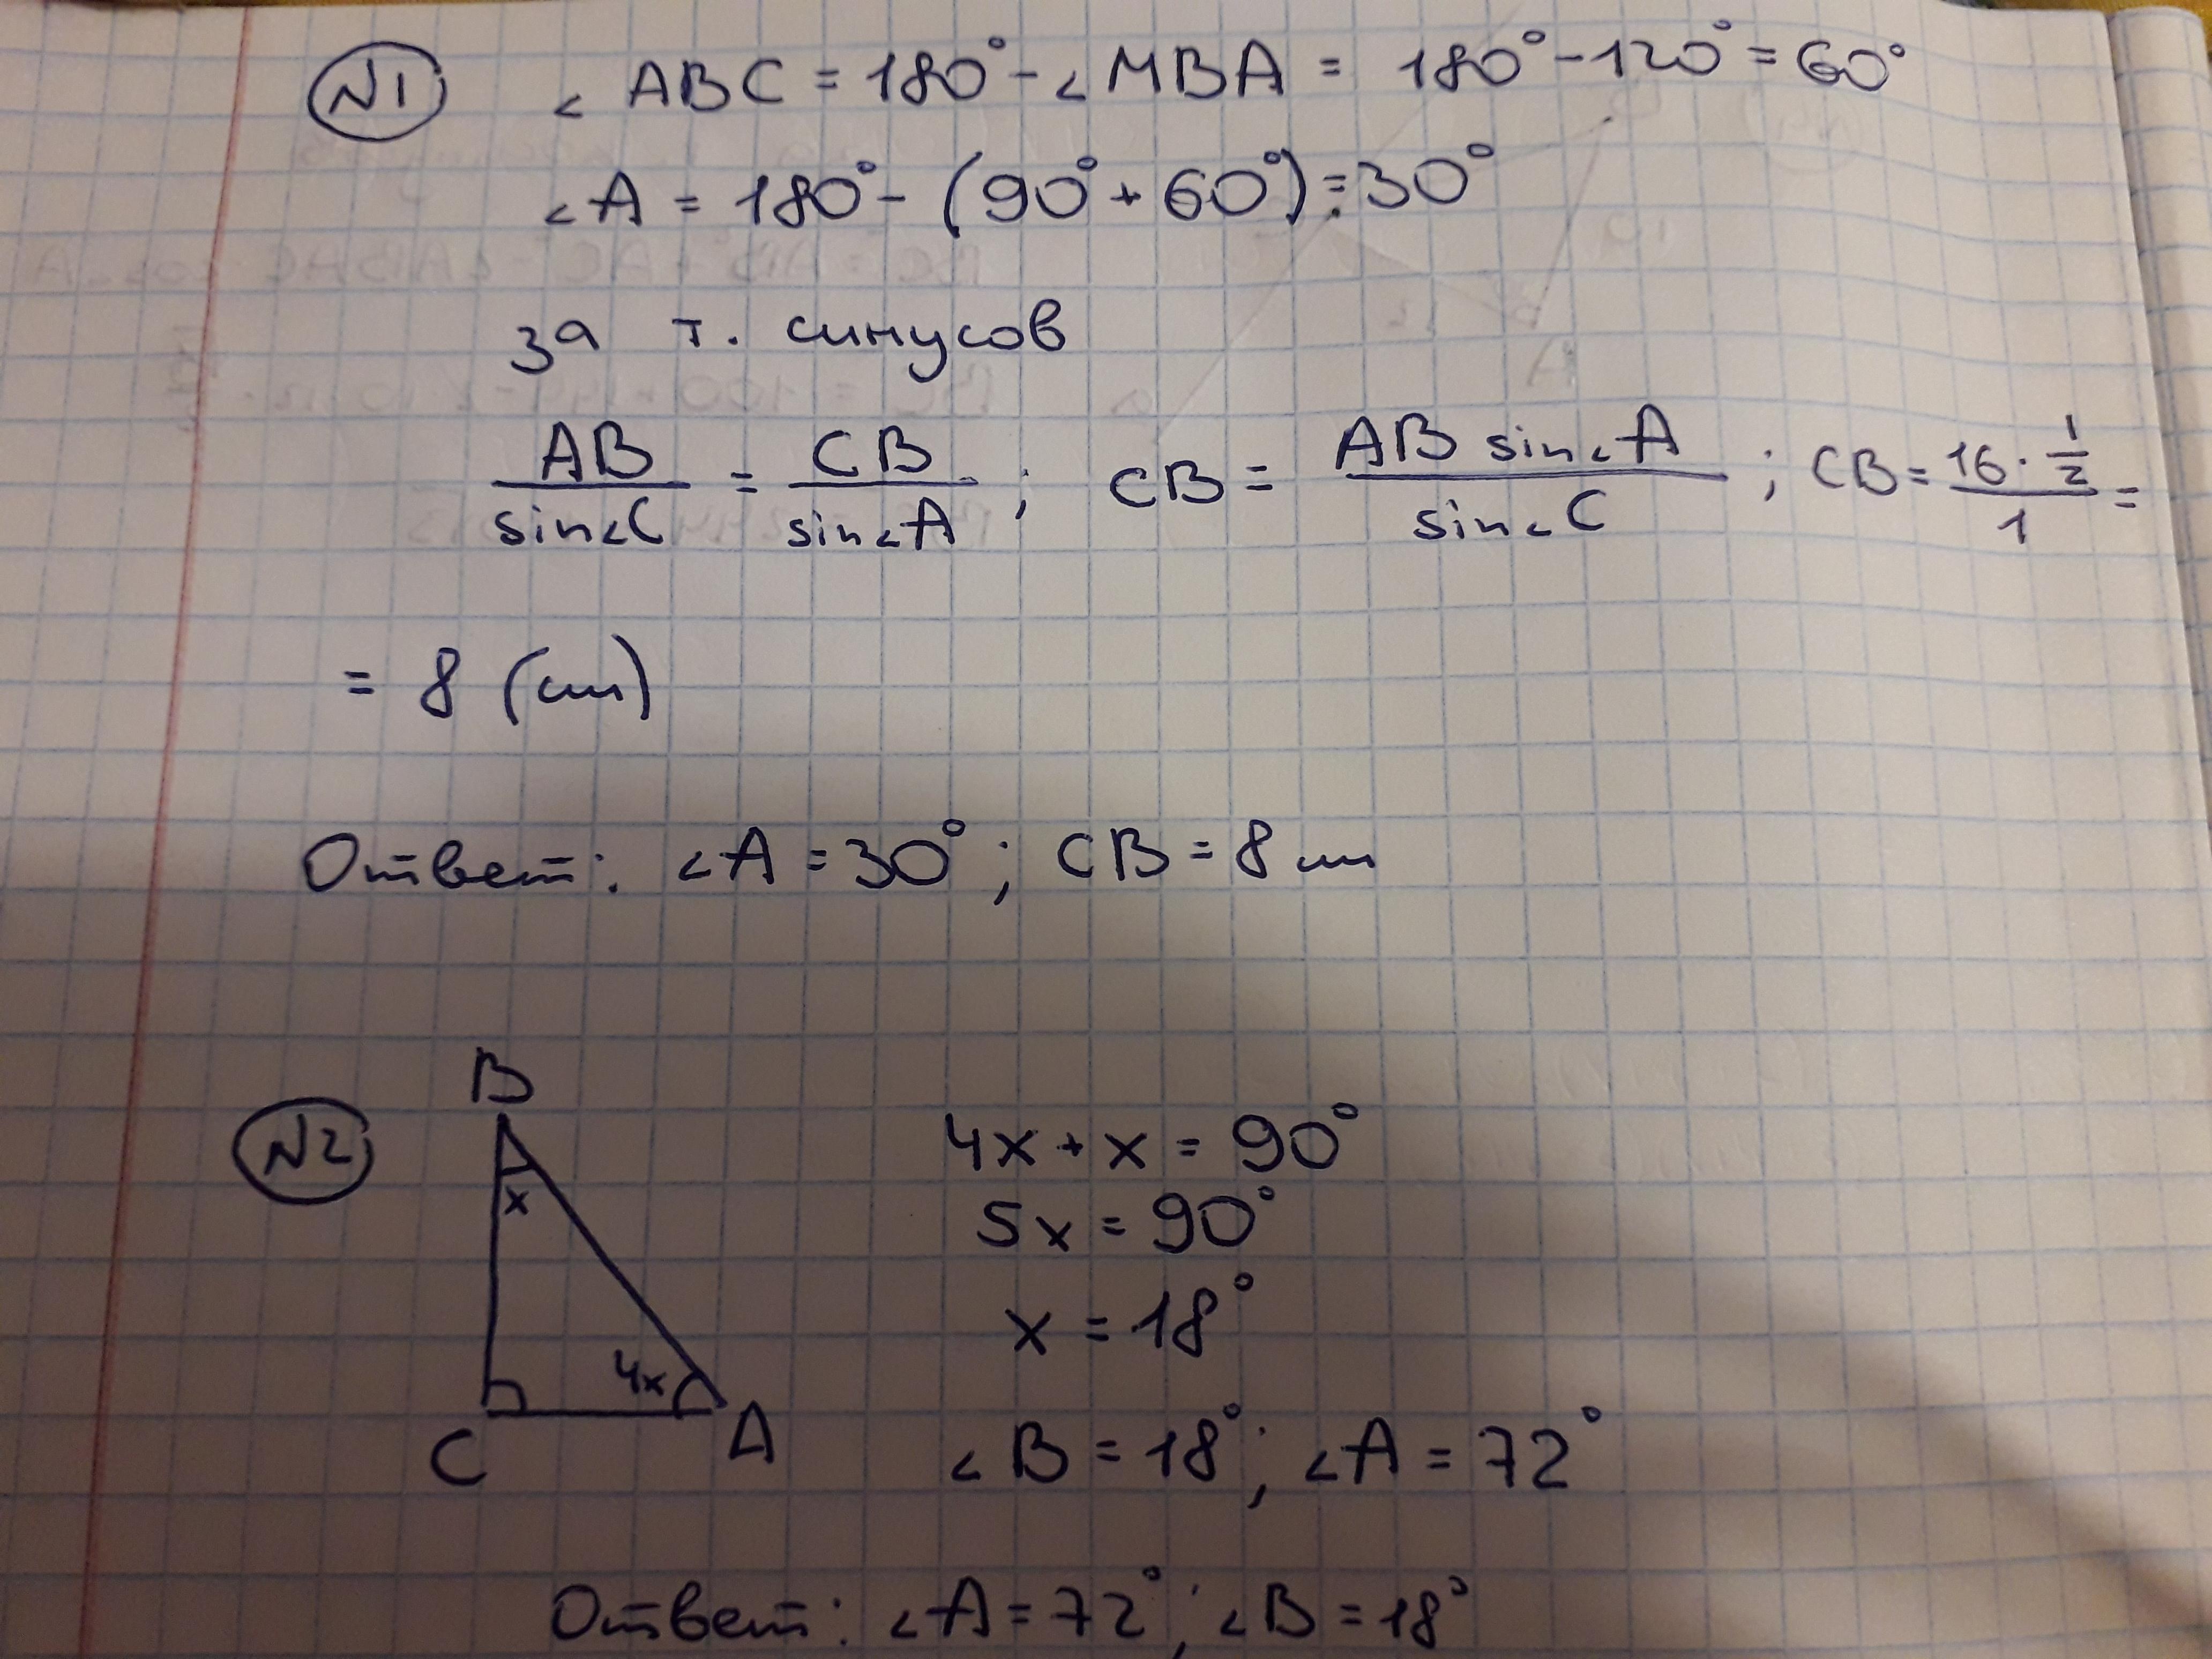 N1 ∠ABC = 180° - ∠MBA = 180° - 120° = 60°
∠A = 180° - (90° + 60°) = 30°
за т. синусов
AB/sin∠C = CB/sin∠A ; CB = AB sin∠A/sin∠C ; CB = 16·1/2/1 =
= 8 (cm)
Ответ: ∠A = 30° ; CB = 8 cm
N2
B
x
4x
C
A
4x + x = 90°
5x = 90°
x = 18°
∠B = 18° ; ∠A = 72°
Ответ: ∠A = 72° ; ∠B = 18°